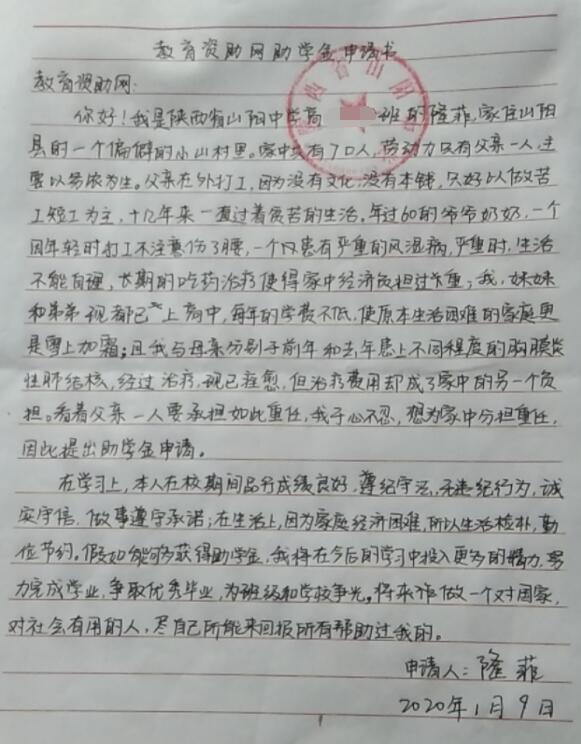 教育资助网助学金申请书
教育资助网:
你好!我是陕西省山阳中学高 班的隆菲,家住山阳
县的一个偏僻的小山村里。家中共有7口人,劳动力只有父亲一人,主
要以务农为生。父亲在外打工,因为没有文化,没有本钱,只好以做苦
工短工为主,十几年来一直过着贫苦的生活。年过60的爷爷奶奶,一个
因年轻时打工不注意伤了腰,一个又患有严重的风湿病,严重时,生活
不能自理,长期的吃药治疗使得家中经济负担过重;我,妹妹
和弟弟现都已上高中,每年的学费不低,使原本生活困难的家庭更
是雪上加霜;且我与母亲分别于前年和去年患上不同程度的胸膜炎
性肺结核,经过治疗,现已痊愈,但治疗费用却成了家中的另一个负
担。看着父亲一人要承担如此重任,我于心不忍,想为家中分担重任,
因此提出助学金申请。
在学习上,本人在校期间品行成绩良好,遵纪守法,无违纪行为,诚
实守信,做事遵守承诺;在生活上,因为家庭经济困难,所以生活朴,勤
俭节约。假如能够获得助学金,我将在今后的学习中投入更多的精力,努
力完成学业,争取优秀毕业,为班级和学校争光。将来作做一个对国家,
对社会有用的人,尽自己所能来回报所有帮助过我的。
申请人:隆菲
2020年1月9日
陕西省山阳